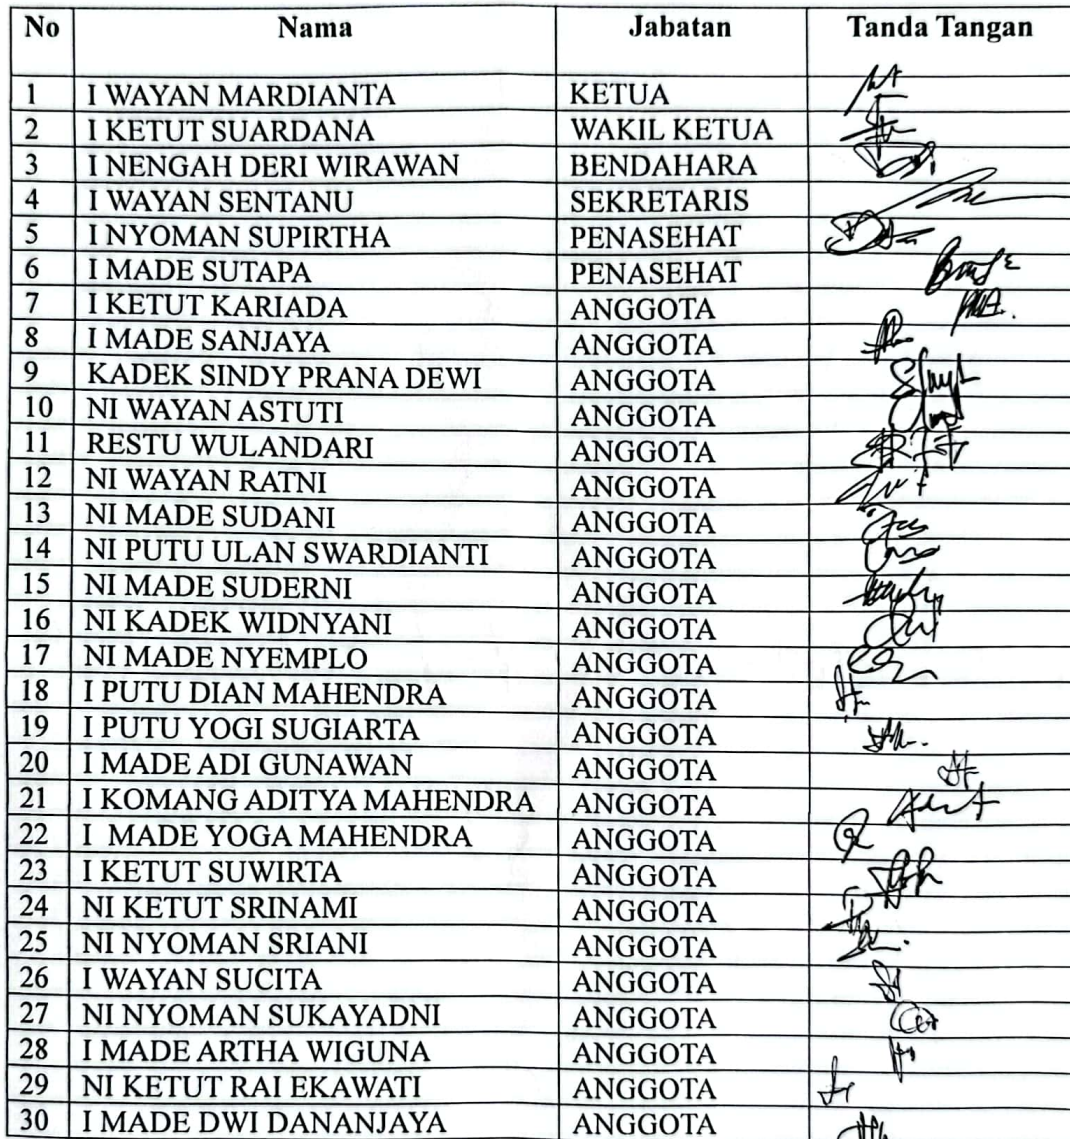 No Nama Jabatan Tanda Tangan
1 I WAYAN MARDIANTA KETUA
2 I KETUT SUARDANA WAKIL KETUA
3 I NENGAH DERI WIRAWAN BENDAHARA
4 I WAYAN SENTANU SEKRETARIS
5 I NYOMAN SUPIRTHA PENASEHAT
6 I MADE SUTAPA PENASEHAT
7 I KETUT KARIADA ANGGOTA
8 I MADE SANJAYA ANGGOTA
9 KADEK SINDY PRANA DEWI ANGGOTA
10 NI WAYAN ASTUTI ANGGOTA
11 RESTU WULANDARI ANGGOTA
12 NI WAYAN RATNI ANGGOTA
13 NI MADE SUDANI ANGGOTA
14 NI PUTU ULAN SWARDIANTI ANGGOTA
15 NI MADE SUDERNI ANGGOTA
16 NI KADEK WIDNYANI ANGGOTA
17 NI MADE NYEMPLO ANGGOTA
18 I PUTU DIAN MAHENDRA ANGGOTA
19 I PUTU YOGI SUGIARTA ANGGOTA
20 I MADE ADI GUNAWAN ANGGOTA
21 I KOMANG ADITYA MAHENDRA ANGGOTA
22 I MADE YOGA MAHENDRA ANGGOTA
23 I KETUT SUWIRTA ANGGOTA
24 NI KETUT SRINAMI ANGGOTA
25 NI NYOMAN SRIANI ANGGOTA
26 I WAYAN SUCITA ANGGOTA
27 NI NYOMAN SUKAYADNI ANGGOTA
28 I MADE ARTHA WIGUNA ANGGOTA
29 NI KETUT RAI EKAWATI ANGGOTA
30 I MADE DWI DANANJAYA ANGGOTA